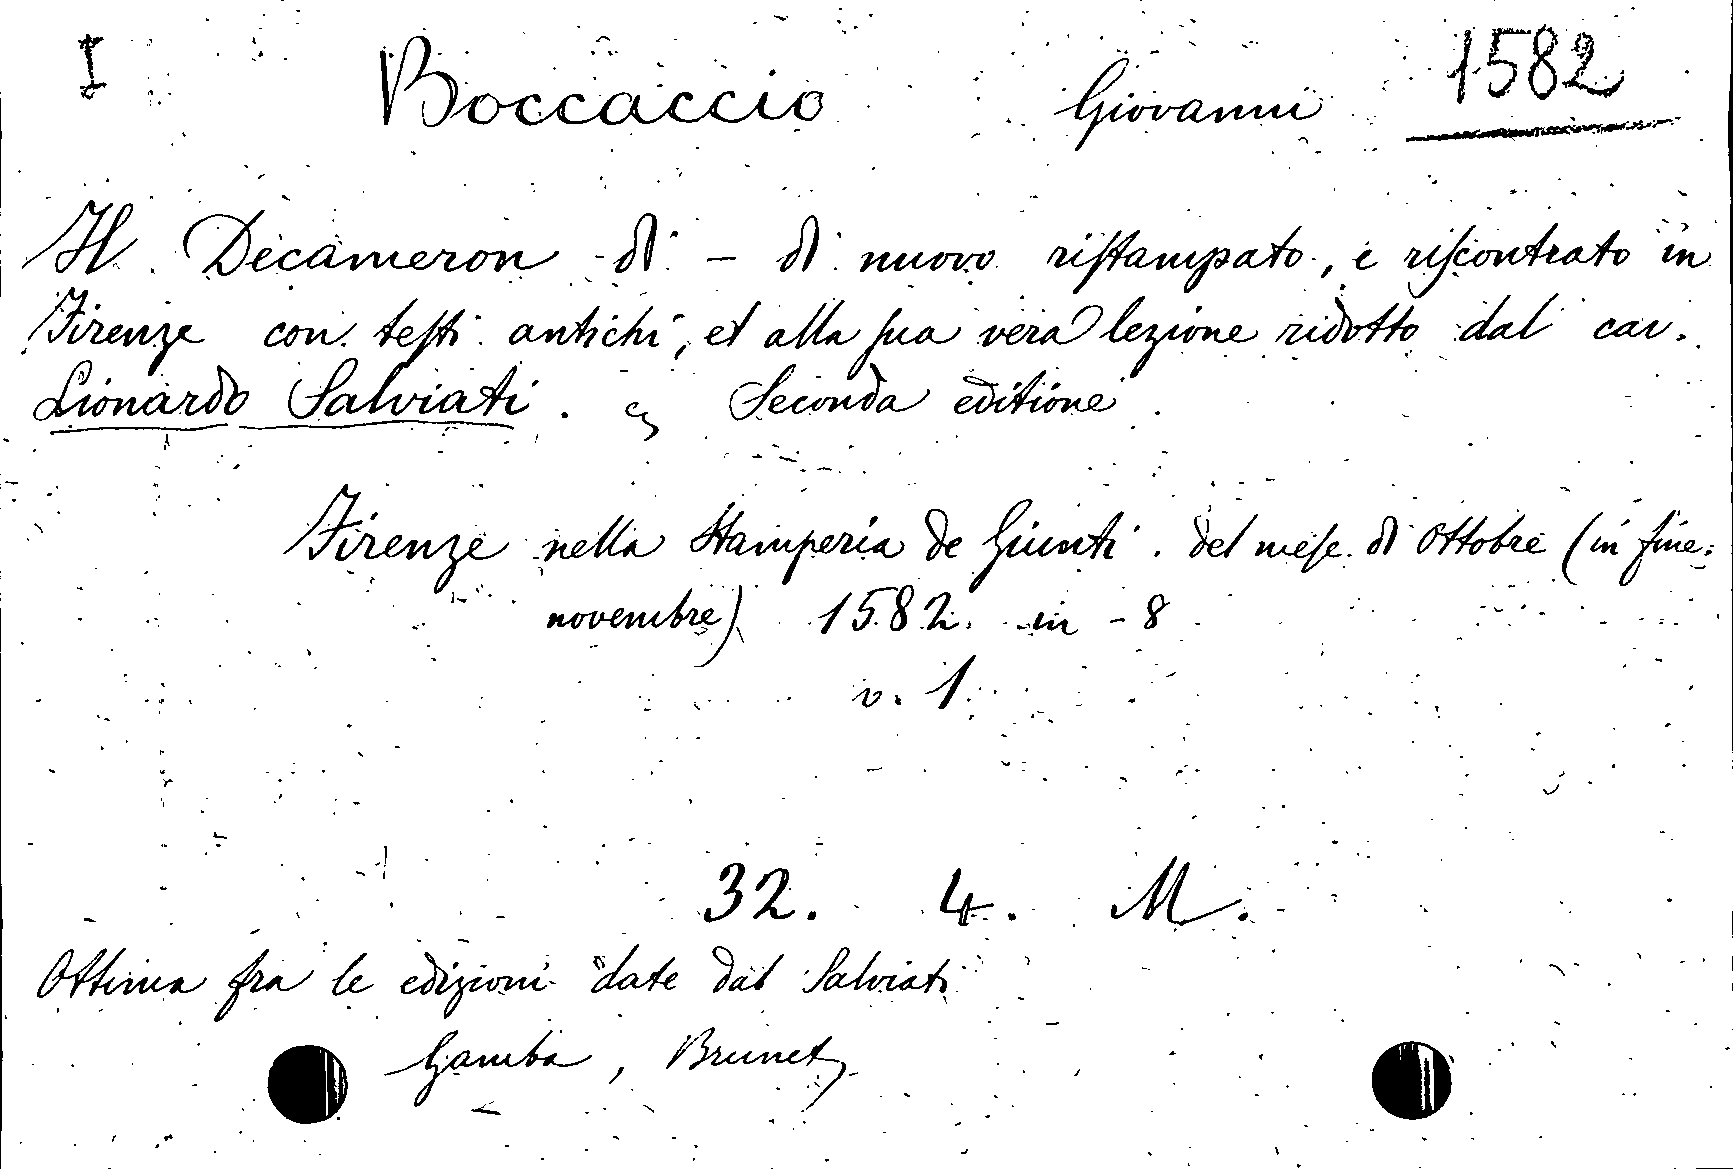 I Boccaccio Giovanni 1582
Il Decameron di - di nuovo ristampato, e riscontrato in
Firenze con testi antichi, et alla sua vera lezione ridotto dal cav.
Lionardo Salviati. Seconda editione.
Firenze nella Stamperia de Giunti. del mese di Ottobre (in fine:
novembre) 1582. in - 8
v. 1.
32. 4. M.
Ottima fra le edizioni date dal Salviati
Gamba, Brunet